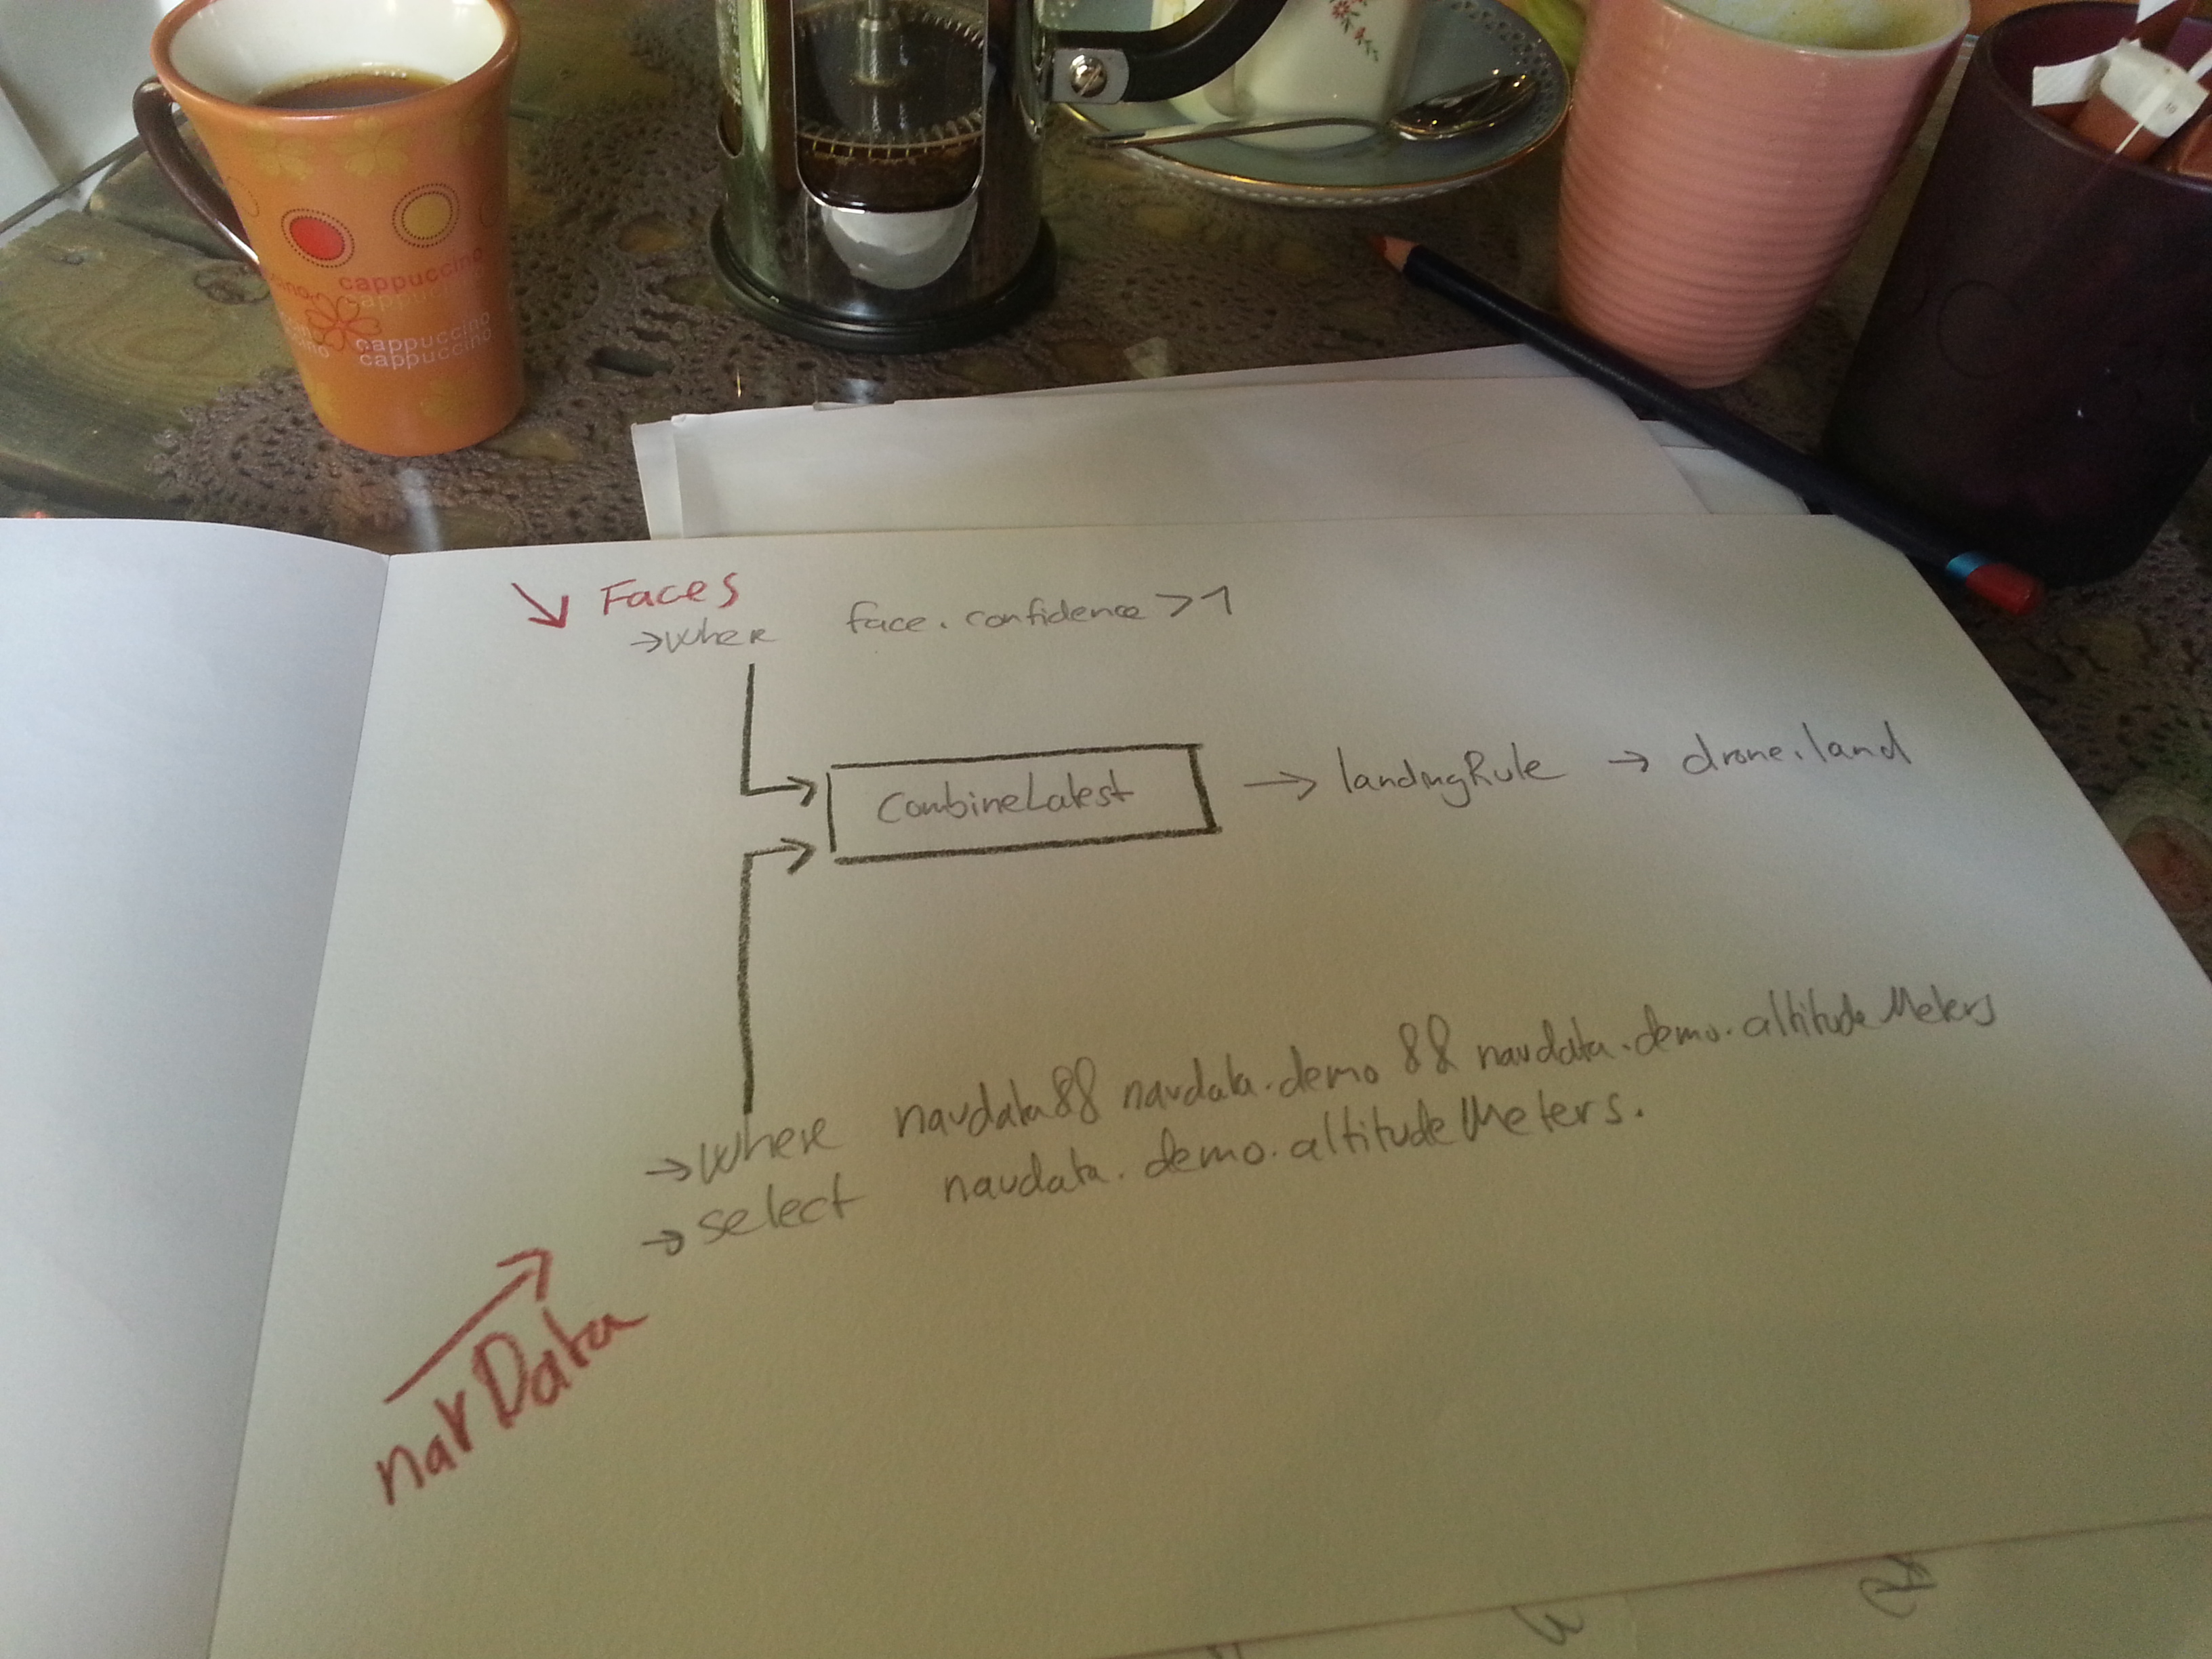 cappuccino
cappuccino
cappuccino
cappuccino
Faces
→where face.confidence >1
CombineLatest → landingRule → drone.land
→where navdata && navdata.demo && navdata.demo.altitudeMeters
→select navdata.demo.altitudeMeters.
navData